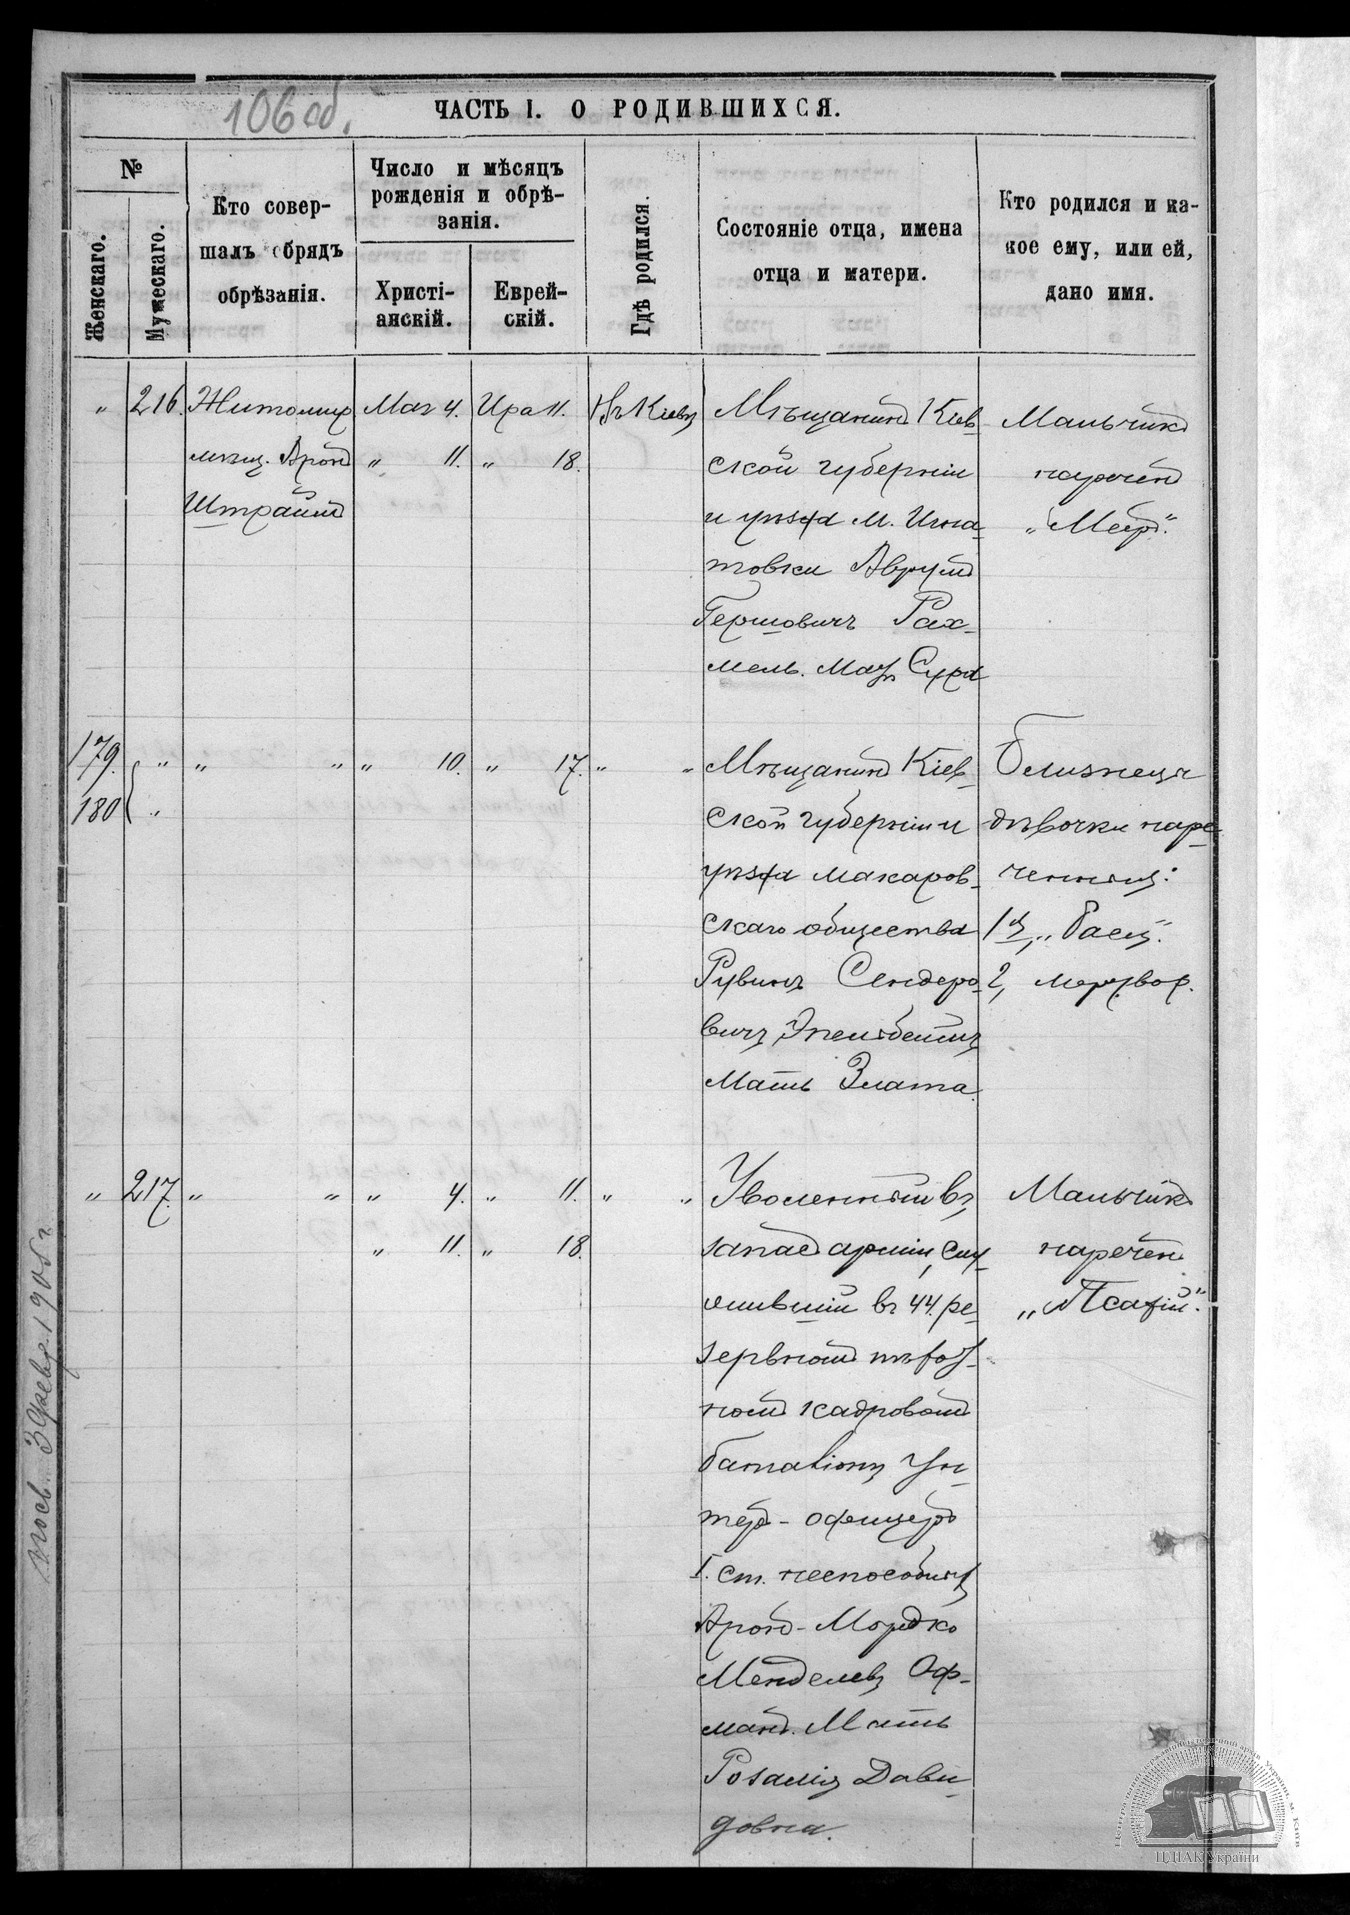 106 об.
ЧАСТЬ I. О РОДИВШИХСЯ.
№
Женскаго.
Мужескаго.
Кто совер-
шалъ обрядъ
обрѣзанія.
Число и мѣсяцъ
рожденія и обрѣ-
занія.
Христі-
анскій.
Еврей-
скій.
Гдѣ родился.
Состояніе отца, имена
отца и матери.
Кто родился и ка-
кое ему, или ей,
дано имя.
" 216. Житомир
мѣщ. Аронъ
Штраймъ
Мая 4. Ира 11.
" 11. " 18.
Въ Кіевѣ
Мѣщанинъ Кіев-
ской губерніи
и уѣзда М. Игна-
товки Аврумъ
Гершовичъ Рах-
мель. Мать Сура
Мальчикъ
нареченъ
"Меѣръ".
179. " " " " 10. " 17. " "
180 "
Мѣщанинъ Кіев-
ской губерніи и
уѣзда Макаров-
скаго общества
Рувинъ Сендеро-
вичъ
Мать Злата
Близнецы
дѣвочки наре-
ченныя:
1я, "Бася".
2, мертвор.
" 217. " " " 4. " 11. " "
" 11. " 18.
Уволенный въ
запас арміи, слу-
жившій въ 44. ре-
зервномъ пѣхот-
номъ кадровомъ
баталіону Ун-
теръ-офицеръ
I. ст. неспособный
Аронъ-Мордко
Менделевъ Оф-
манъ. Мать
Розалія Дави-
довна.
Мальчикъ
нареченъ
"Исай".
3 февр. 1905 г.
ЦДІАК України